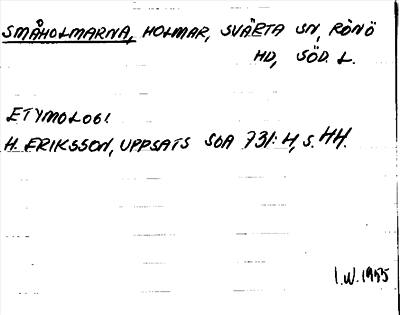 SMÅHOLMARNA, HOLMAR, SVÄRTA SN, RÖNÖ
HD, SÖD. L.
ETYMOLOGI
H. ERIKSSON, UPPSATS SOA 731:4, S. 44.
I.W. 1955